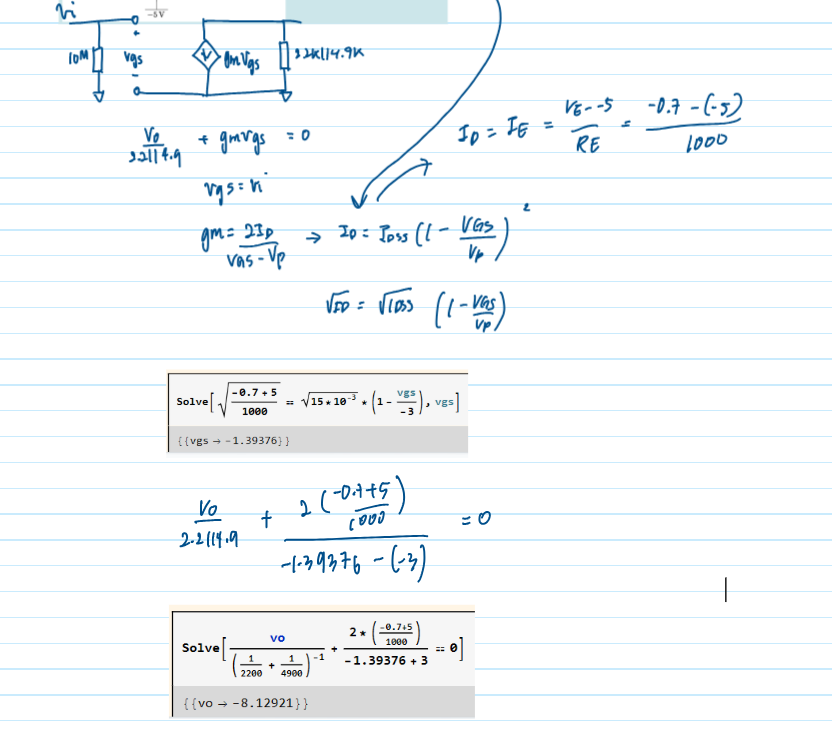 vi
-5V
10M
+
vgs
-
gmvgs
2.2k||4.9k
Vo/2.2||4.9 + gmvgs = 0
vgs = vi
gm = 2ID/(VGS - Vp) → ID = IDSS (1 - VGS/Vp)²
ID = IE = (VE - -5)/RE = (-0.7 - (-5))/1000
√ID = √IDSS (1 - VGS/Vp)
Solve[√((-0.7 + 5)/1000) == √(15 * 10⁻³) * (1 - vgs/-3), vgs]
{{vgs → -1.39376}}
Vo/2.2||4.9 + 2((-0.7+5)/1000)/(-1.39376 - (-3)) = 0
Solve[vo/(1/2200 + 1/4900)⁻¹ + 2 * ((-0.7+5)/1000)/(-1.39376 + 3) == 0]
{{vo → -8.12921}}